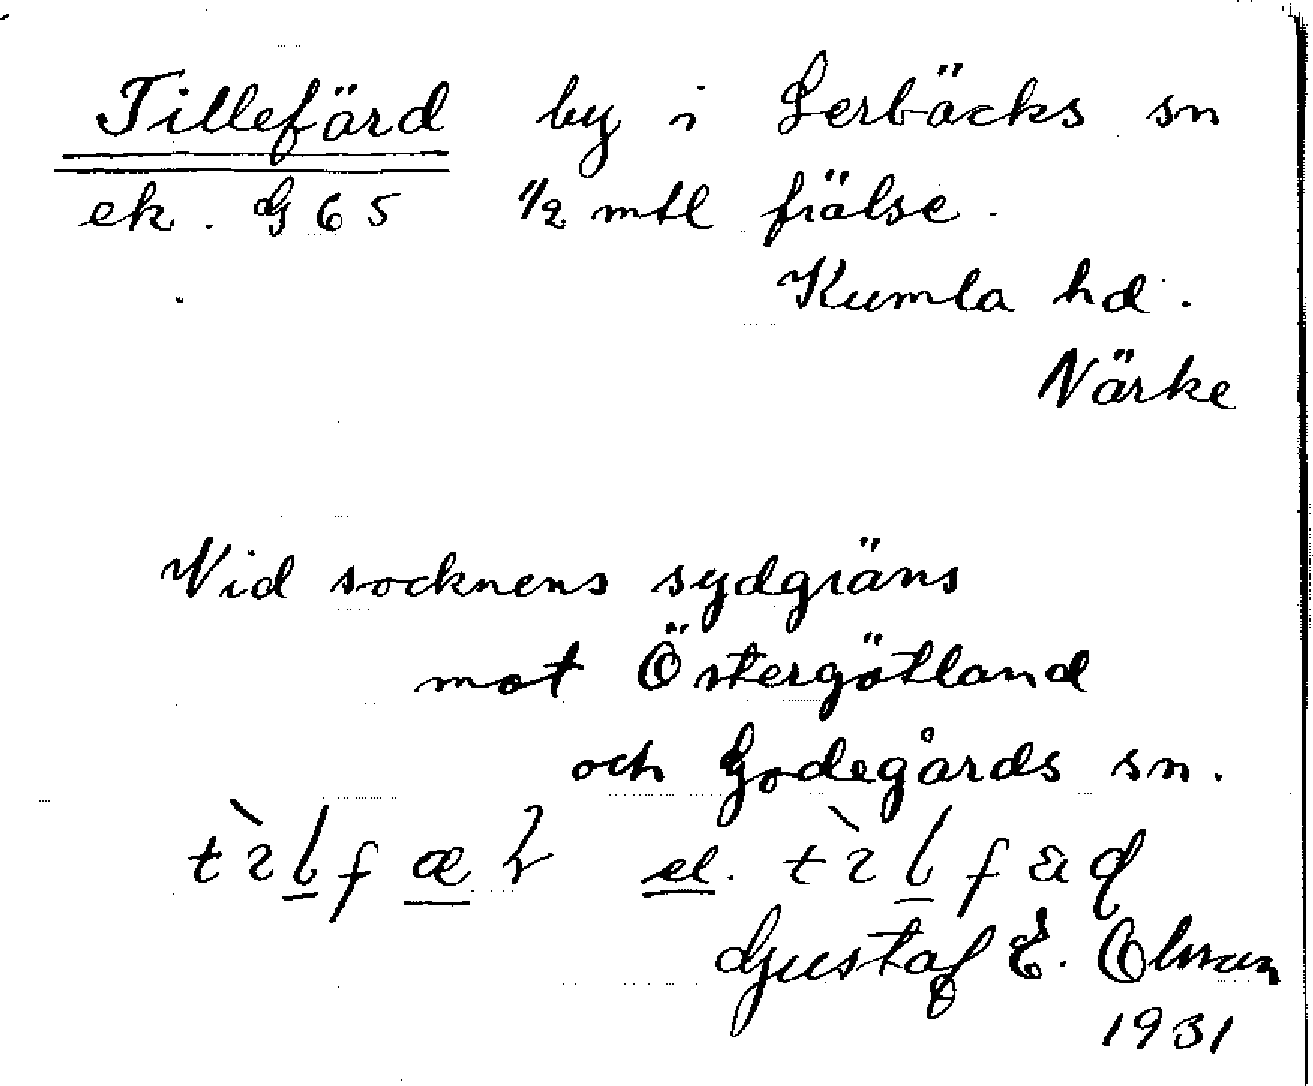 Tillefärd by i Lerbäcks sn
ek. G 65 1/2 mtl frälse.
Kumla hd.
Närke
Vid socknens sydgräns
mot Östergötland
och Godegårds sn.
el.
Gustaf E. Olsson
1931